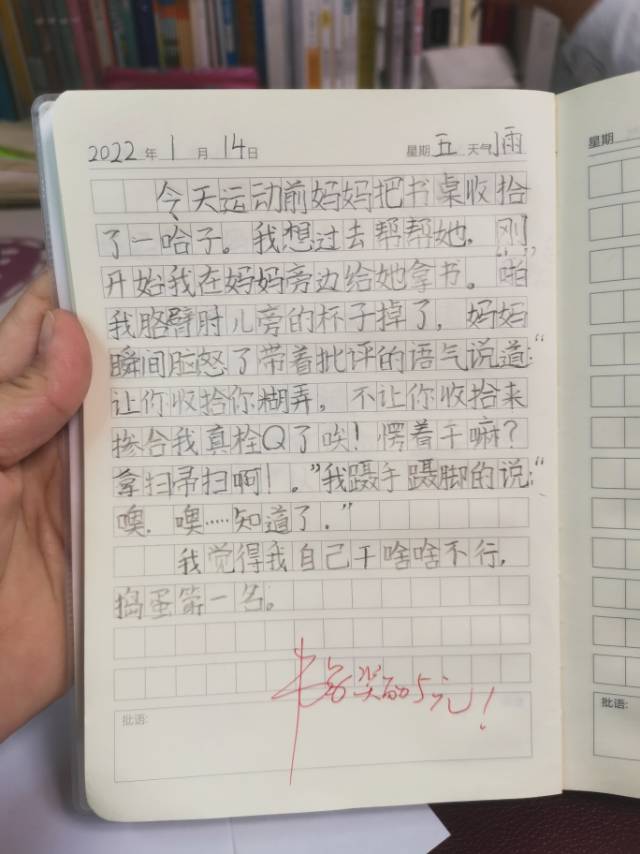 2022年1月14日 星期五 天气小雨
今天运动前妈妈把书桌收拾
了一哈子。我想过去帮帮她，刚
开始我在妈妈旁边给她拿书。啪
我胳臂肘儿旁的杯子掉了，妈妈
瞬间恼怒了带着批评的语气说道：“
让你收拾你糊弄，不让你收拾来
掺合我真栓Q了唉！愣着干嘛？
拿扫帚扫啊！。”我蹑手蹑脚的说：“
噢，噢……知道了。”
我觉得我自己干啥啥不行，
捣蛋第一名。
奖励5元！
批语:
星期
批语: